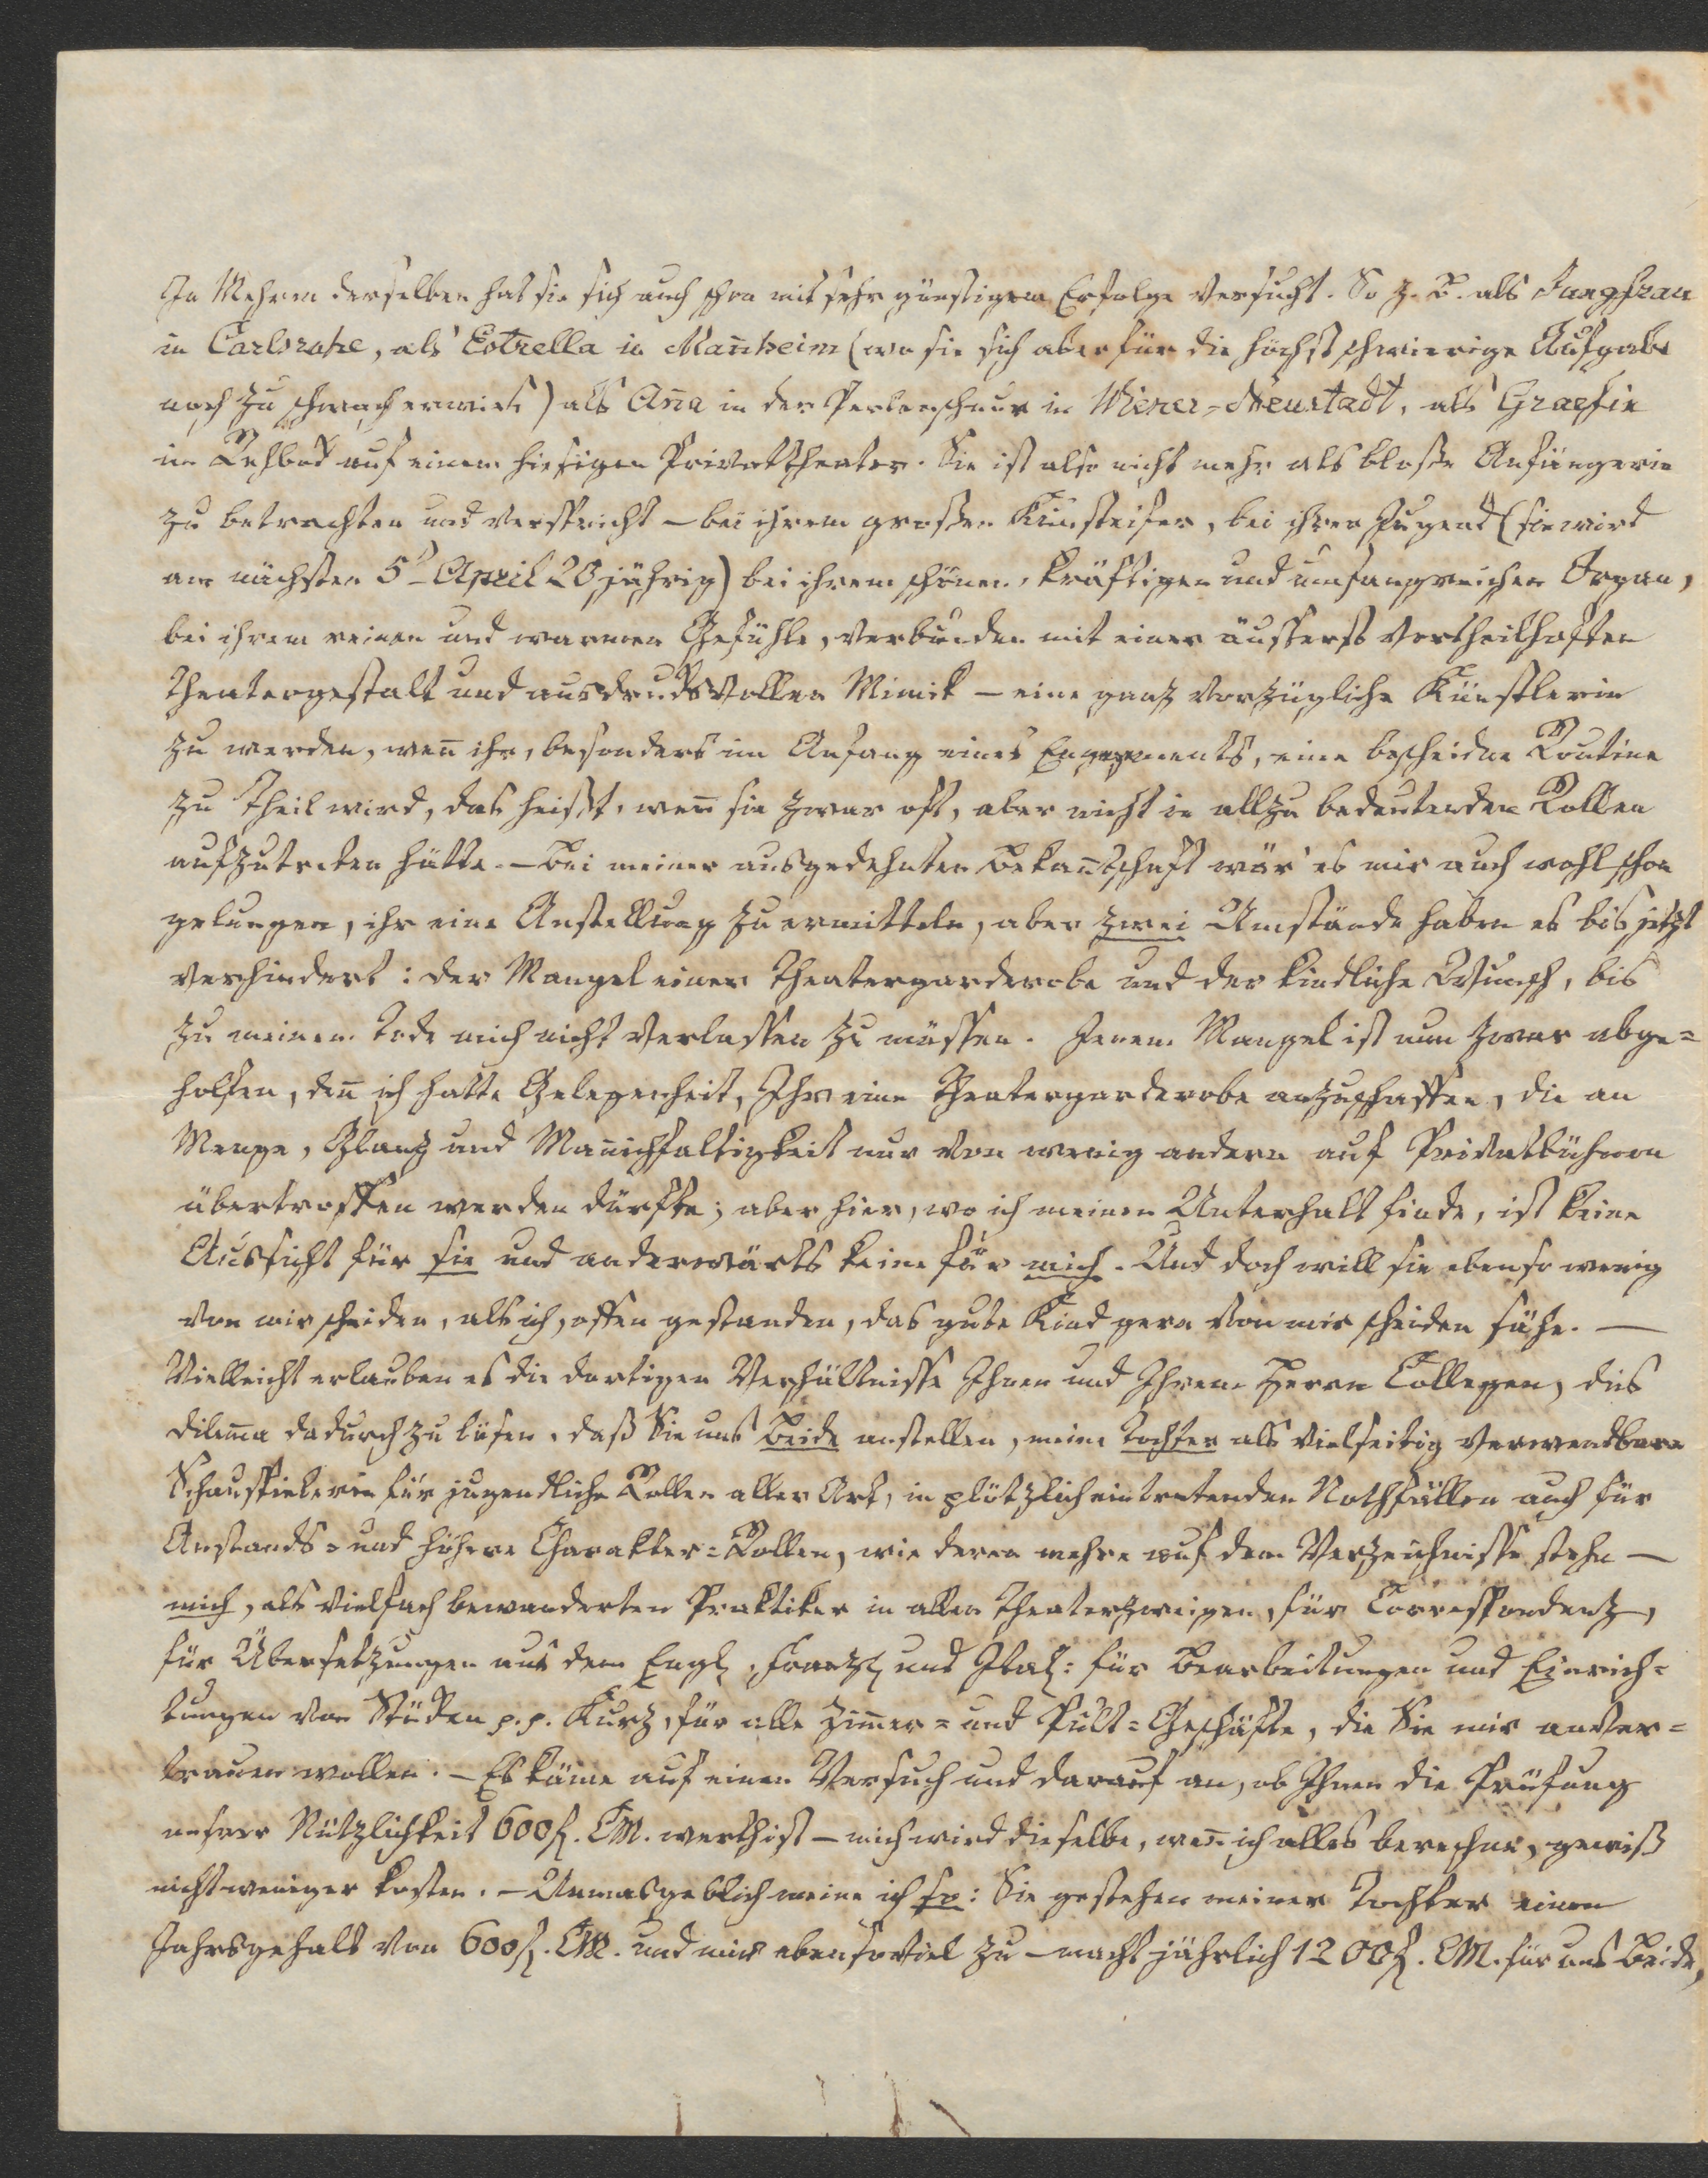 In Mehren derselben hat sie sich auch schon mit sehr günstigem Erfolge versucht. So z. B. als Jungfrau
in Carlsruhe, als Estrella in Man̄heim (wo sie sich aber für die höchst schwierige Aufgabe
noch zu schwach erwies) als An̄a in der Perlenschnur in Wiener-Neustadt, als Graefin
im Rehbock auf einem hiesigen Privattheater. Sie ist also nicht mehr als blosse Anfängerin
zu betrachten und verspricht – bei ihrem grossen Kunsteifer, bei ihrer Jugend (sie wird
am nächsten 5t April 20jährig) bei ihrem schönen, kräftigen und umfangreichen Organ,
bei ihrem reinen und warmen Gefühle, verbunden mit einer äusserst vortheilhaften
Theatergestalt und ausdrucksvollen Mimik – eine ganz vorzügliche Künstlerin
zu werden, wen̄ ihr, besonders im Anfang eines Engagements, eine bescheidne Routine
zu Theil wird, das heisst, wen̄ sie zwar oft, aber nicht in allzu bedeutenden Rollen
aufzutreten hätte. – Bei meiner ausgedehnten Bekan̄tschaft wär' es mir auch wohl schon
gelungen, ihr eine Anstellung zu ermitteln, aber zwei Umstände haben es bis jetzt
verhindert: der Mangel einer Theatergarderobe und der kindliche Wunsch, bis
zu meinem Tode mich nicht verlassen zu müssen. Jenem Mangel ist nun zwar abge=
holfen, den̄ ich hatte Gelegenheit, Ihr eine Theatergarderobe anzuschaffen, die an
Menge, Glanz und Man̄ichfaltigkeit nur von wenig andern auf Privatbühnen
übertroffen werden dürfte; aber hier, wo ich meinen Unterhalt finde, ist keine
Aussicht für sie und anderwärts keine für mich. Und doch will sie ebenso wenig
von mir scheiden, als ich, offen gestanden, das gute Kind gern von mir scheiden sähe. –
Vielleicht erlauben es die dortigen Verhältnisse Ihnen und Ihrem Herrn Collegen, dies
Dilem̄a dadurch zu lösen, daß Sie uns Beide anstellen, meine Tochter als vielseitig verwendbare
Schauspielerin für jugendliche Rollen aller Art, in plötzlich eintretenden Nothfällen auch für
Anstands- und höhere Charakter=Rollen, wie deren mehre auf dem Verzeichnisse stehn –
mich, als vielfach bewanderten Praktiker in allen Theaterzweigen, für Correspondenz,
für Übersetzungen aus dem Engl., Franz. und Ital: für Bearbeitungen und Einrich=
tungen von Stücken p.p. Kurz, für alle Zim̄er= und Pult=Geschäfte, die Sie mir anver=
trauen wollen. – Es käme auf einen Versuch und darauf an, ob Ihnen die Prüfung
unsrer Nützlichkeit 600 f. CM. werth ist – mich wird dieselbe, wen̄ ich alles berechne, gewiß
nicht weniger kosten. – Unmasgeblich meine ich so: Sie gestehen meiner Tochter einen
Jahrsgehalt von 600 f. CM. und mir ebensoviel zu – macht jährlich 1200 f. CM. für uns Beide,